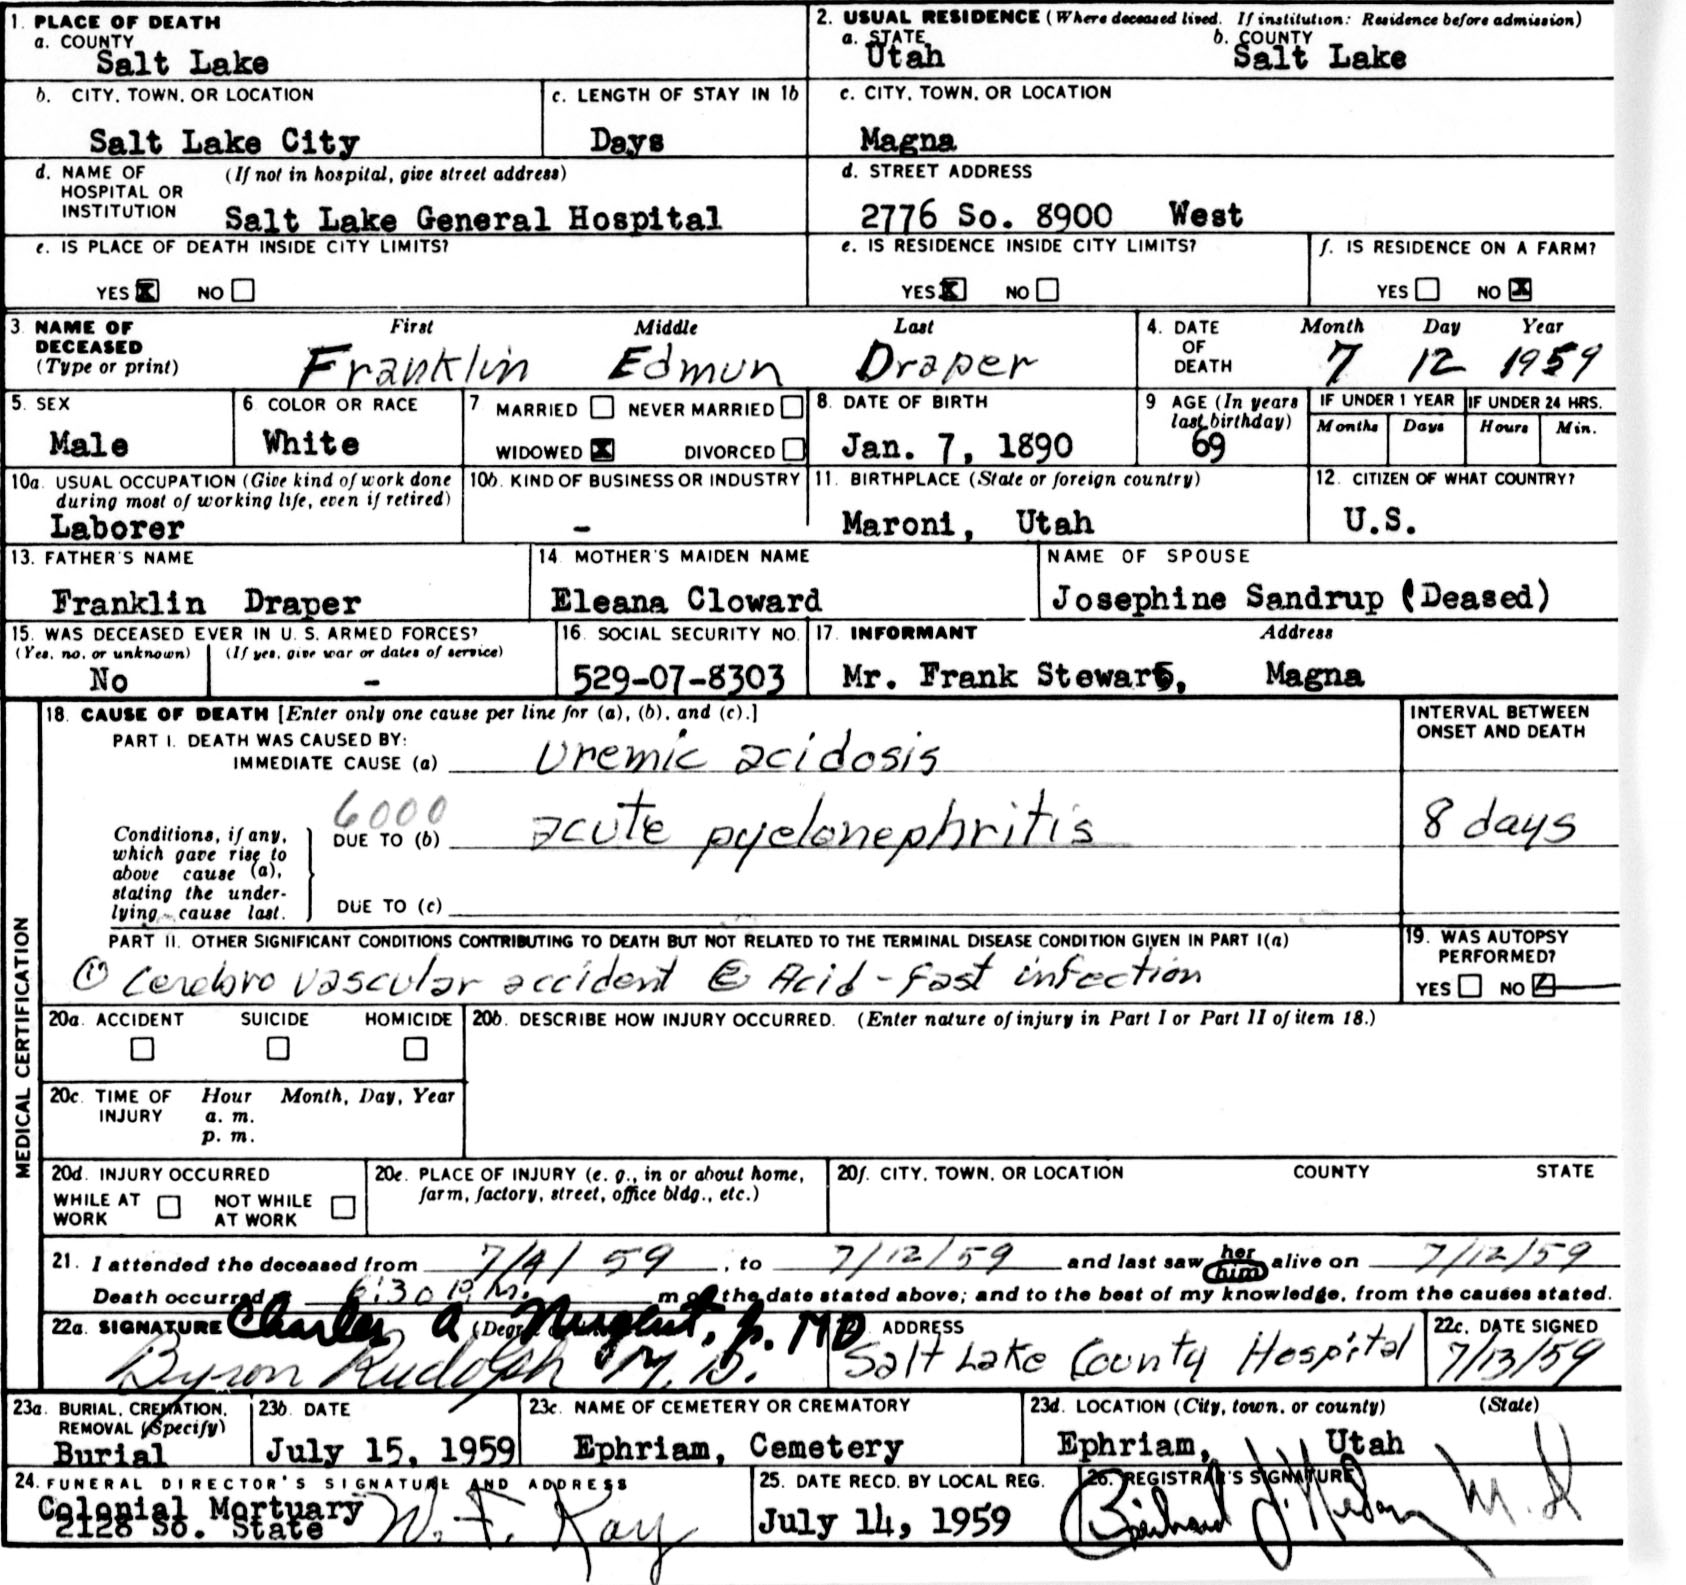 1. PLACE OF DEATH
a. COUNTY
Salt Lake
2. USUAL RESIDENCE (Where deceased lived. If institution: Residence before admission)
a. STATE b. COUNTY
Utah Salt Lake
b. CITY, TOWN, OR LOCATION c. LENGTH OF STAY IN 1b
Salt Lake City Days
c. CITY, TOWN, OR LOCATION
Magna
d. NAME OF HOSPITAL OR INSTITUTION (If not in hospital, give street address)
Salt Lake General Hospital
d. STREET ADDRESS
2776 So. 8900 West
e. IS PLACE OF DEATH INSIDE CITY LIMITS?
YES X NO
e. IS RESIDENCE INSIDE CITY LIMITS?
YES X NO
f. IS RESIDENCE ON A FARM?
YES NO X
3. NAME OF DECEASED (Type or print) First Middle Last
Franklin Edmun Draper
4. DATE OF DEATH Month Day Year
7 12 1959
5. SEX
Male
6. COLOR OR RACE
White
7 MARRIED NEVER MARRIED
WIDOWED X DIVORCED
8. DATE OF BIRTH
Jan. 7, 1890
9 AGE (In years last birthday)
69
IF UNDER 1 YEAR IF UNDER 24 HRS.
Months Days Hours Min.
10a. USUAL OCCUPATION (Give kind of work done during most of working life, even if retired)
Laborer
10b. KIND OF BUSINESS OR INDUSTRY
-
11. BIRTHPLACE (State or foreign country)
Maroni, Utah
12. CITIZEN OF WHAT COUNTRY?
U.S.
13. FATHER'S NAME
Franklin Draper
14. MOTHER'S MAIDEN NAME
Eleana Cloward
NAME OF SPOUSE
Josephine Sandrup (Deased)
15. WAS DECEASED EVER IN U. S. ARMED FORCES?
(Yes, no, or unknown) (If yes, give war or dates of service)
No -
16. SOCIAL SECURITY NO.
529-07-8303
17. INFORMANT Address
Mr. Frank Stewart, Magna
MEDICAL CERTIFICATION
18. CAUSE OF DEATH [Enter only one cause per line for (a), (b), and (c).]
INTERVAL BETWEEN ONSET AND DEATH
PART I. DEATH WAS CAUSED BY:
IMMEDIATE CAUSE (a) Uremic acidosis
6000
Conditions, if any, which gave rise to above cause (a), stating the underlying cause last.
DUE TO (b) acute pyelonephritis 8 days
DUE TO (c)
PART II. OTHER SIGNIFICANT CONDITIONS CONTRIBUTING TO DEATH BUT NOT RELATED TO THE TERMINAL DISEASE CONDITION GIVEN IN PART I(a)
① Cerebro vascular accident ② Acid-fast infection
19. WAS AUTOPSY PERFORMED?
YES NO
20a. ACCIDENT SUICIDE HOMICIDE
20b. DESCRIBE HOW INJURY OCCURRED. (Enter nature of injury in Part I or Part II of item 18.)
20c. TIME OF INJURY Hour Month, Day, Year
a. m.
p. m.
20d. INJURY OCCURRED
WHILE AT WORK NOT WHILE AT WORK
20e. PLACE OF INJURY (e. g., in or about home, farm, factory, street, office bldg., etc.)
20f. CITY, TOWN, OR LOCATION COUNTY STATE
21. I attended the deceased from 7/4/59, to 7/12/59 and last saw her him alive on 7/12/59
Death occurred 6:30 P.M. m the date stated above; and to the best of my knowledge, from the causes stated.
22a. SIGNATURE Charles A. Nugent, Jr. MD
Byron Rudolph M.D.
ADDRESS
Salt Lake County Hospital
22c. DATE SIGNED
7/13/59
23a. BURIAL, CREMATION, REMOVAL (Specify)
Burial
23b. DATE
July 15, 1959
23c. NAME OF CEMETERY OR CREMATORY
Ephriam, Cemetery
23d. LOCATION (City, town, or county) (State)
Ephriam, Utah
24. FUNERAL DIRECTOR'S SIGNATURE AND ADDRESS
Colonial Mortuary
2128 So. State
W. F. Kay
25. DATE RECD. BY LOCAL REG.
July 14, 1959
26. REGISTRAR'S SIGNATURE